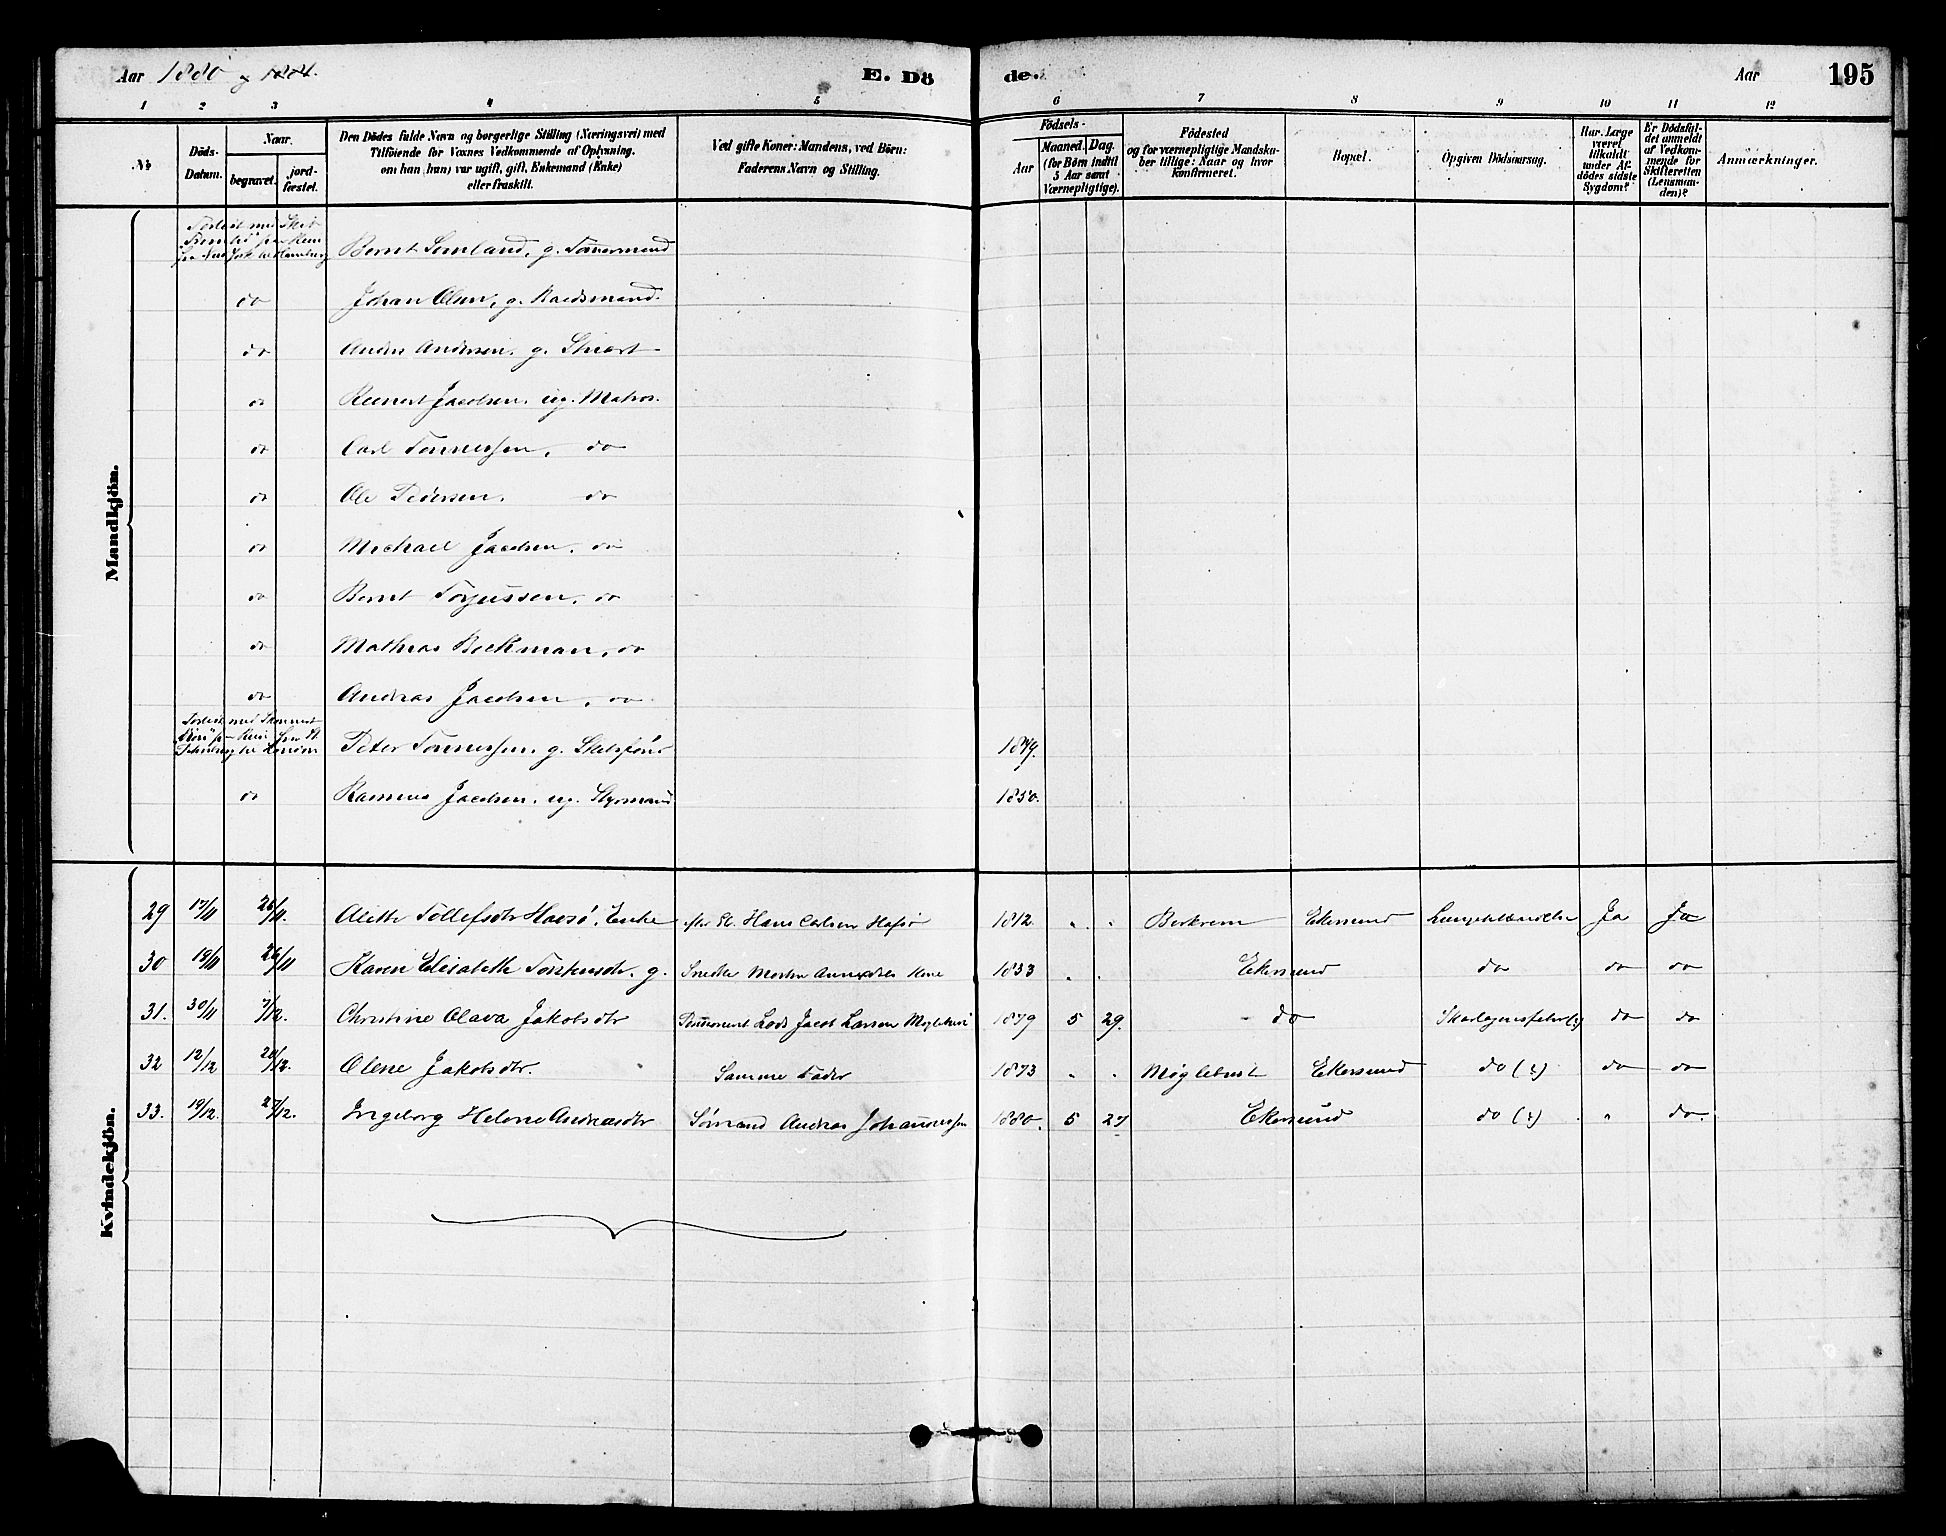 Aar 1880
E. Dö de.
Aar 195
1 2 3 4 5 6 7 8 9 10 11 12
No
Döds-Datum.
Naar
begravet.
jordfæstet.
Den Dödes fulde Navn og borgerlige Stilling (Næringsvei) med
Tilföiende for Voxnes Vedkommende af Oplysning,
om han (hun) var ugift, gift, Enkemand (Enke)
eller fraskilt.
Ved gifte Koner: Mandens, ved Börn:
Faderens Navn og Stilling.
Födsels-
Aar
Maaned. Dag.
(for Börn indtil
5 Aar samt
Værnepligtige).
Födested
og for værnepligtige Mandskaber tillige: Naar og hvor
konfirmeret.
Bopæl.
Opgiven Dödsaarsag.
Har Læge
været
tilkaldt
under Afdödes sidste
Sygdom?
Er Dödsfaldet anmeldt
af Vedkommende for
Skifteretten
(Lensmanden)?
Anmærkninger.
Mandkjön.
Bernt Semland, g. Tömmermand
do Johan Olsen, g. Baadsmand.
do Andr. Andersen, g. Stuart
do Reinert Jacobsen, ug. Matros.
do Carl Tönnessen, do
do Ole Pedersen, do
do Michael Jacobsen, do
do Bernt Torjussen, do
do Mathias Beckman, do
do Andreas Jacobsen, do
Peter Tönnessen, g. Skibsförer 1849.
do Rasmus Jacobsen, ug. Styrmand 1850.
Kvindekjön.
29 17/11 26/11. Alethe Tollefsdtr Havsö, Enke Hans Carlsen Hafsö 1812. " " Birkrem Ekersund Lungebetændelse Ja Ja
30 18/11 26/11 Karen Elisabeth g. Snedker Morten Kone 1833 " " Ekersund do do do
31. 30/11 7/12. Christine Olava Jakobsdtr Lods Jacob Larsen Möglebust 1879 5 29. do Skarlagensfeber do do
32 12/12 20/12. Olene Jakobsdtr. Samme Fader 1873 " " Möglebust Ekersund do do do
33. 19/12. 27/12. Ingeborg Helene Andreasdtr Sömand Andreas Johannessen 1880. 5 27 Ekersund do " do.